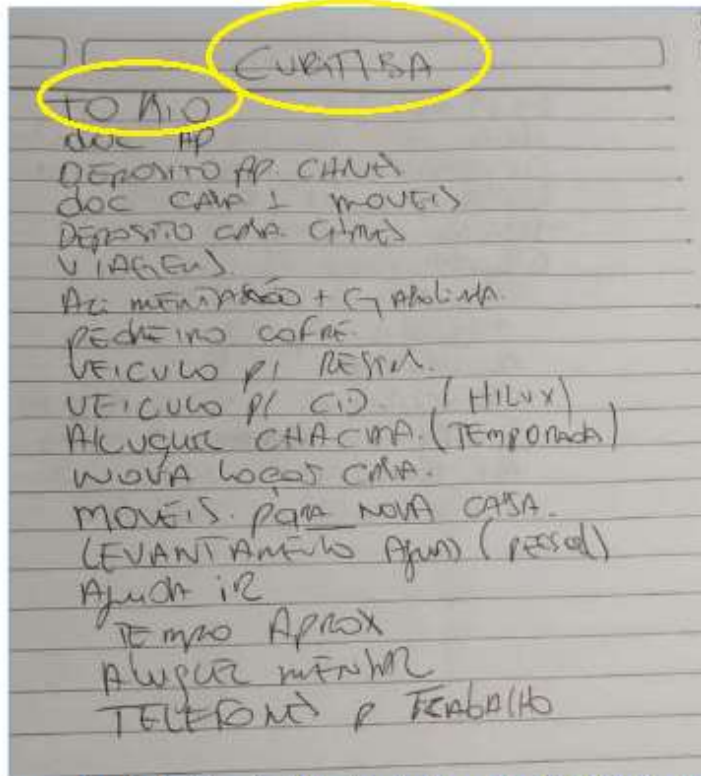 CURITIBA
TOKIO
doc AP
DEPOSITO AP. CHAVES
doc CASA 1 MOVEIS
DEPOSITO CASA. CHAVES
VIAGENS.
ALIMENTAÇÃO + GASOLINA.
PEDREIRO COFRE.
VEICULO P/
VEICULO P/ (HILUX)
ALUGUEL CHACARA. (TEMPORADA)
NOVA CASA.
MOVEIS. PARA NOVA CASA.
LEVANTAMENTO (PESSOAL)
AJUDA
TEMPO APROX
ALUGUEL MENSAL
TELEFONES P TRABALHO